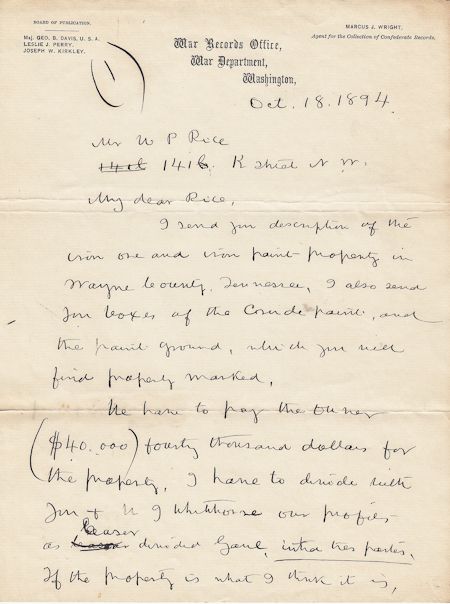 BOARD OF PUBLICATION.
Maj. GEO. B. DAVIS, U. S. A.
LESLIE J. PERRY.
JOSEPH W. KIRKLEY.
MARCUS J. WRIGHT,
Agent for the Collection of Confederate Records.
War Records Office,
War Department,
Washington,
1
Oct. 18. 1894.
Mr W P Rice
1416 K Street N W.
My dear Rice,
I send you description of the
iron ore and iron paint property in
Wayne County, Tennessee, I also send
you boxes of the Crude paint, and
the paint ground, which you will
find properly marked.
We have to pay the owner
($40.000) fourty thousand dollars for
the property, I have to divide with
you & N J Whitthorne our profits
as Ceaser divided Gaul, intra tres partes.
If the property is what I think it is,